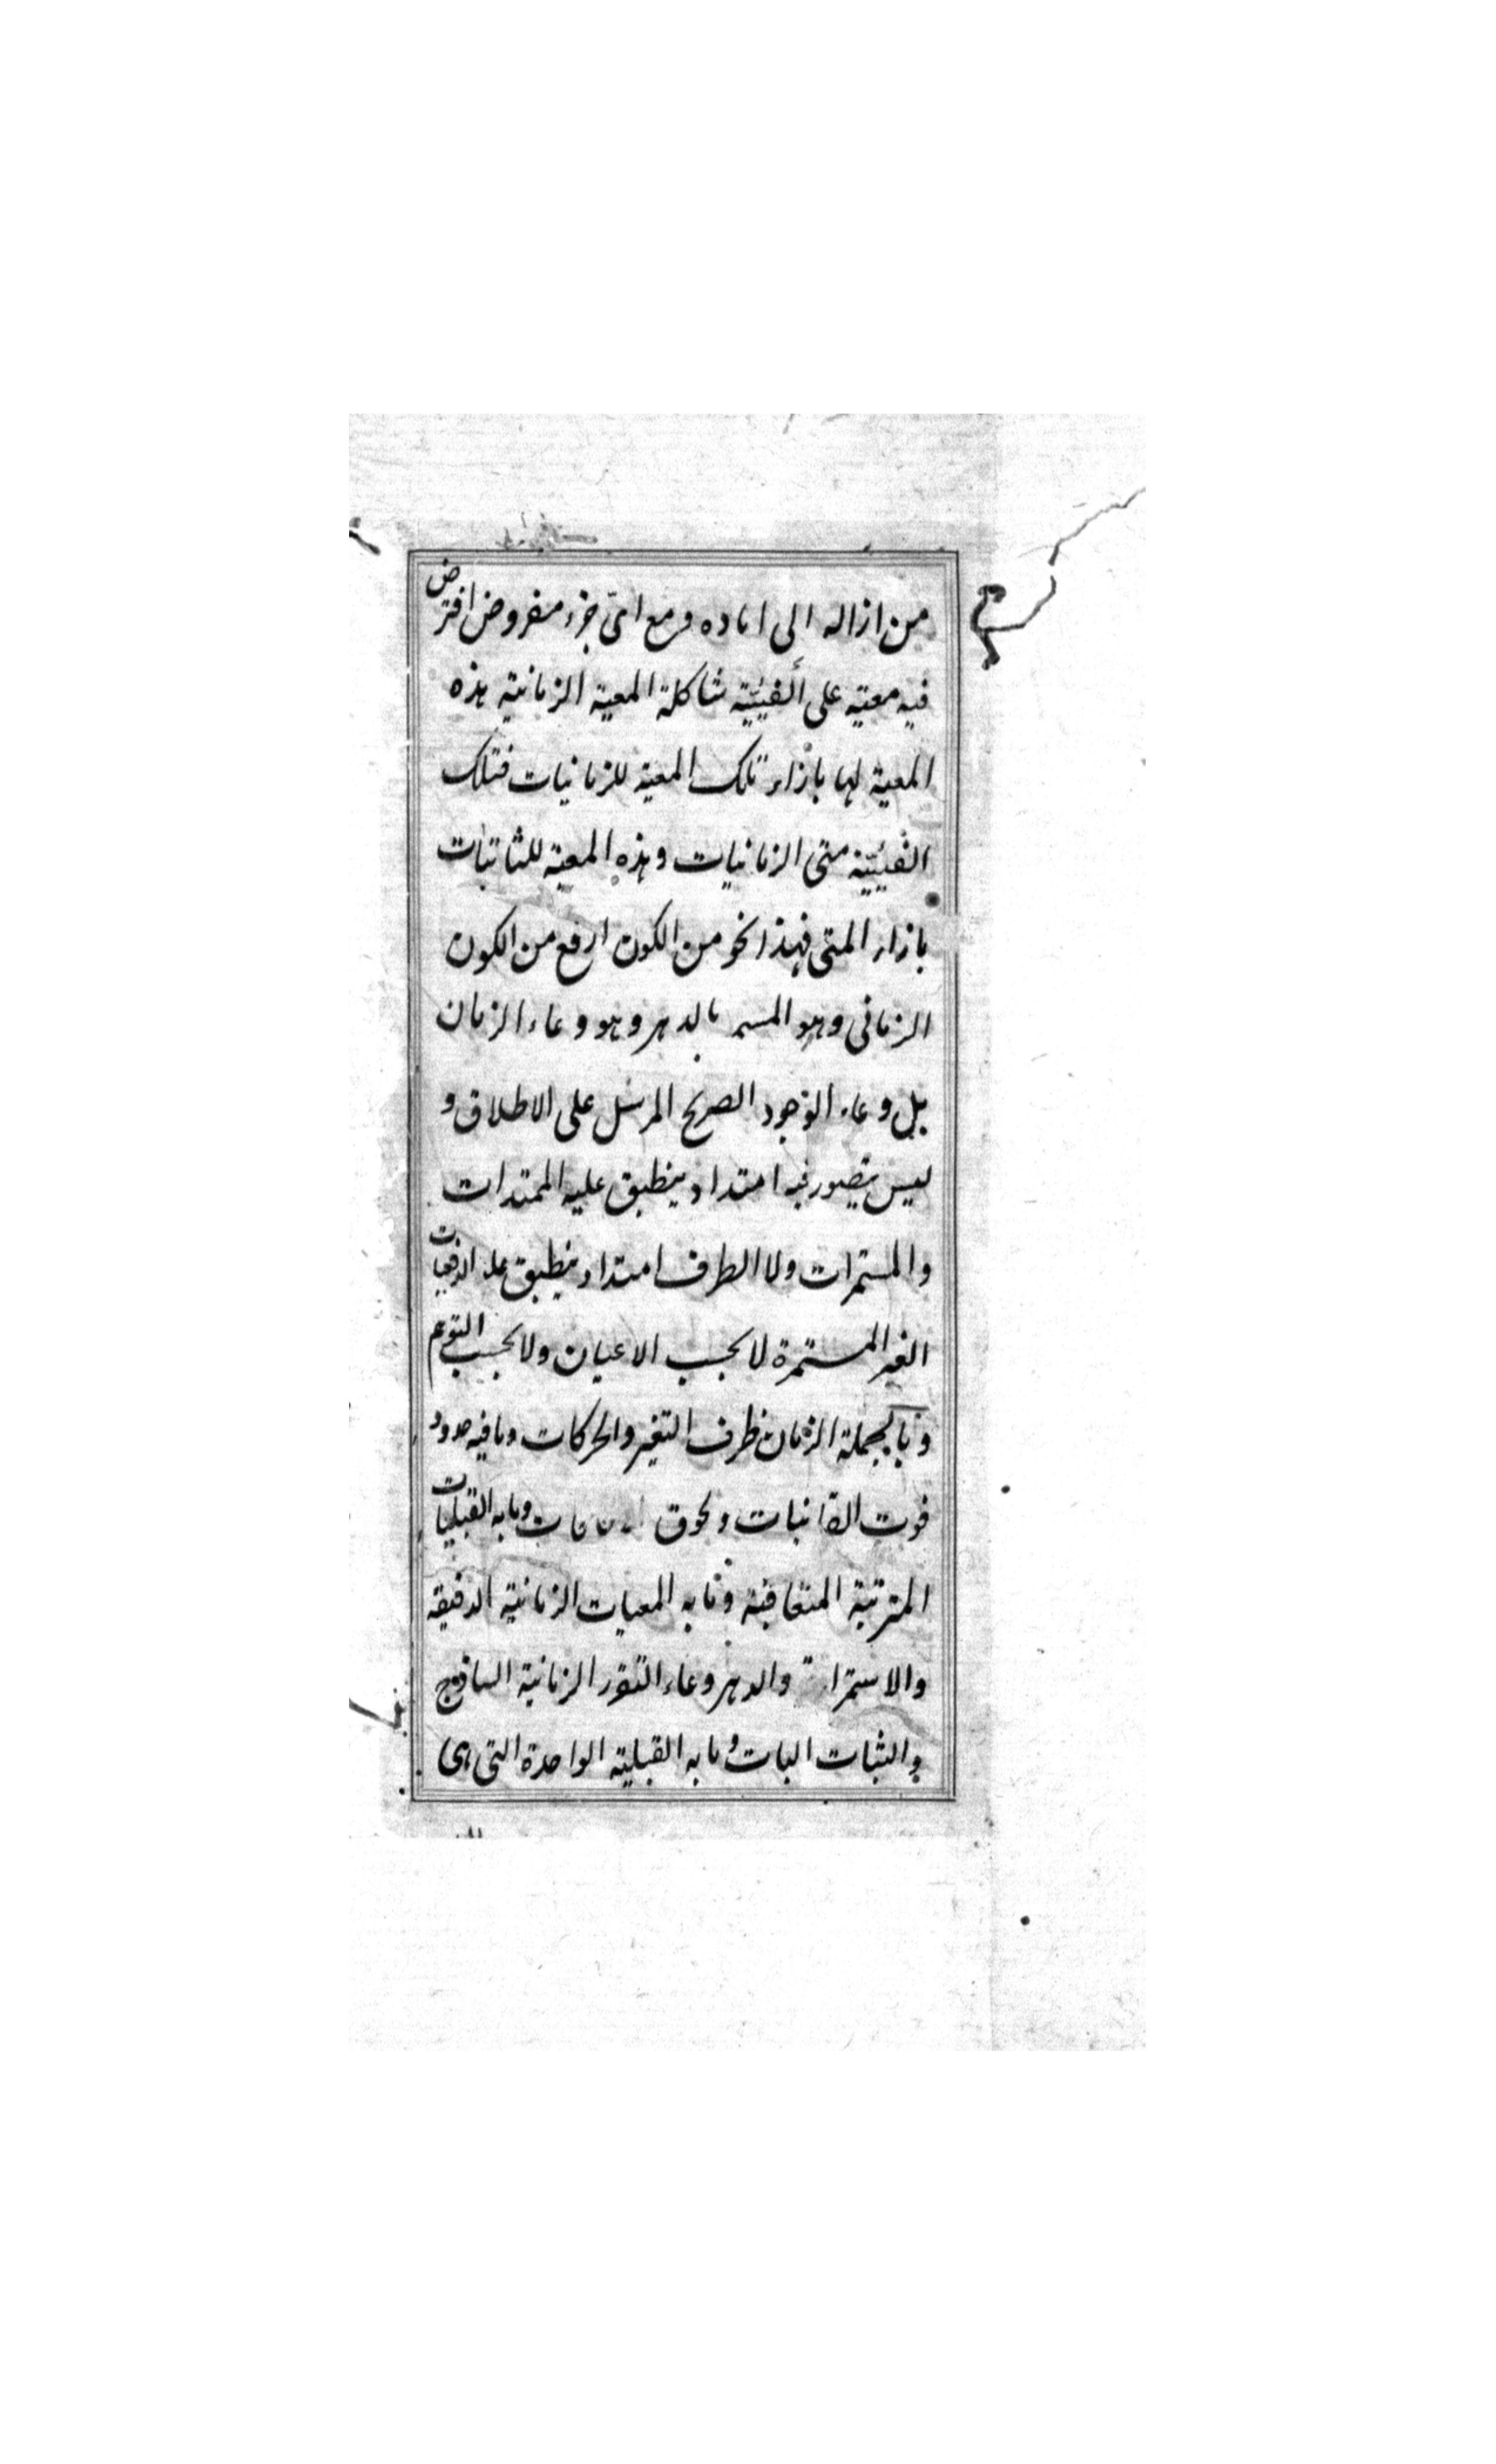 من ازاله الى اباده ومع اىّ جزء مفروض افترض
فيه معيّة على الفيئيّة شاكلة المعية الزمانية هذه
المعية لها بازاء تلك المعية للزمانيات فتلك
الفيئيّة متى الزمانيات وهذه المعية للثابتات
بازاء المتى فهذا نحو من الكون ارفع من الكون
الزمانى وهو المسمى بالدهر وهو وعاء الزمان
بل وعاء الوجود الصريح المرسل على الاطلاق و
ليس يتصور فيه امتداد ينطبق عليه الممتدات
والمستمرات ولا الطرف امتداد ينطبق عليه الدفعيات
الغير المستمرة لا بحسب الاعيان ولا بحسب التوهم
وبالجملة الزمان ظرف التغير والحركات وما فيه حدود
فوت الفانيات ولحوق وما به القبليات
المترتبة المتعاقبة وما به المعيات الزمانية الدفيقه
والاستمرا والدهر وعاء التقرر الزمانية الساذج
والثبات البات وما به القبلية الواحدة التى هى